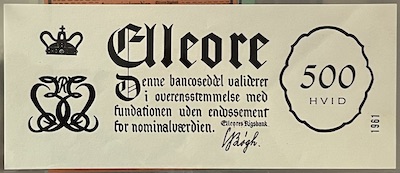 Elleore
Denne bancoseddel validerer
i overensstemmelse med
fundationen uden endossement
for nominalværdien.
Elleores Rigsbank
500
HVID
1961